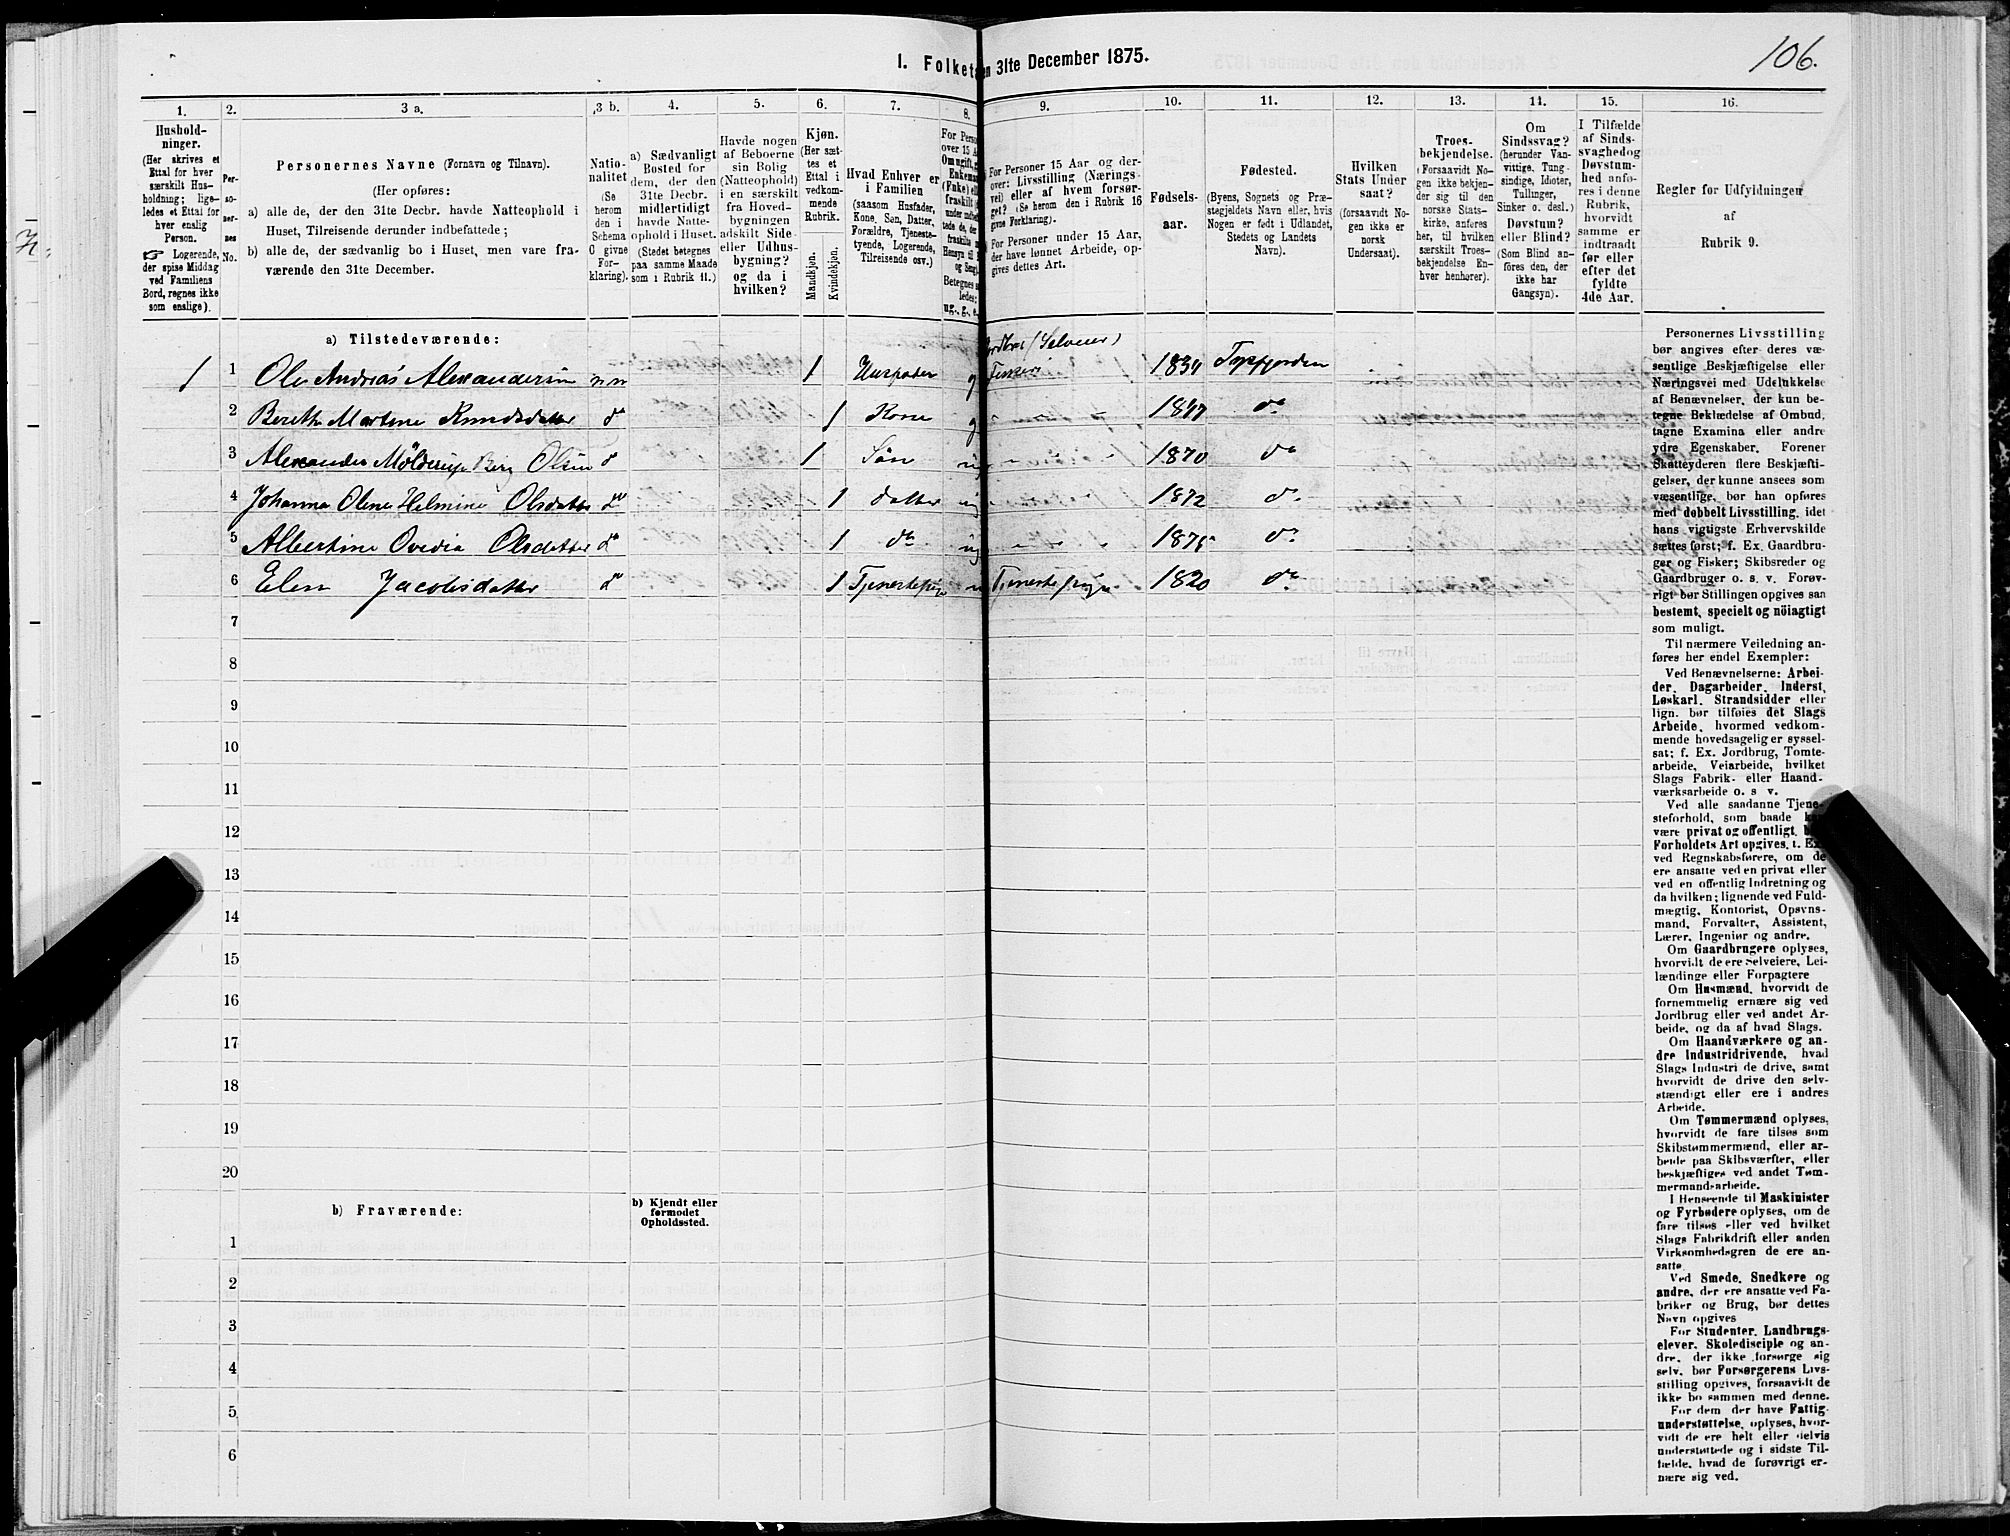 106.
1. Folket en 31te December 1875.
1. 2. 3 a. 3 b. 4. 5. 6. 7. 8. 9. 10. 11. 12. 13. 14. 15. 16.
Hushold-
ninger.
(Her skrives et
Ettal for hver
særskilt Hus-
holdning; lige-
ledes et Ettal for
hver enslig
Person.
☞ Logerende,
der spise Middag
ved Familiens
Bord, regnes ikke
som enslige).
Per-
so-
ner-
nes
No.
Personernes Navne (Fornavn og Tilnavn).
(Her opføres:
a) alle de, der den 31te Decbr. havde Natteophold i
Huset, Tilreisende derunder indbefattede;
b) alle de, der sædvanlig bo i Huset, men vare fra-
værende den 31te December.
Natio-
nalitet
(Se
herom
den i
Schema
G givne
For-
klaring).
a) Sædvanligt
Bosted for
dem, der den
31te Decbr.
midlertidigt
havde Natte-
ophold i Huset.
(Stedet betegnes
paa samme Maade
som i Rubrik 11.)
Havde nogen
af Beboerne
sin Bolig
(Natteophold)
i en særskilt
fra Hoved-
bygningen
adskilt Side-
eller Udhus-
bygning?
og da i
hvilken?
Kjøn.
(Her sæt-
tes et
Ettal i
vedkom-
mende
Rubrik.
Mandkjøn.
Kvindekjøn.
Hvad Enhver er
i Familien
(saasom Husfader,
Kone, Søn, Datter,
Forældre, Tjeneste-
tyende, Logerende,
Tilreisende osv.)
For Perso
over 15 Aa
Om ugift, g
Enkema
(Fnke) el
fraskilt
Hensyn til
og Seng
Betegnes s
ledes:
ug., g., e.
For Personer 15 Aar og der-
over: Livsstilling (Nærings-
vei) eller af hvem forsør-
get? (Se herom den i Rubrik 16
givne Forklaring).
For Personer under 15 Aar,
der have lønnet Arbeide, op-
gives dettes Art.
Fødsels-
aar.
Fødested.
(Byens, Sognets og Præ-
stegjeldets Navn eller, hvis
Nogen er født i Udlandet,
Stedets og Landets
Navn).
Hvilken
Stats Under
saat?
(forsaavidt No-
gen ikke er
norsk
Undersaat).
Troes-
bekjendelse.
(Forsaavidt No-
gen ikke bekjen-
der sig til den
norske Stats-
kirke, anføres
her, til hvilken
særskilt Troes-
bekjendelse En-
hver henhører).
Om
Sindssvag?
(herunder Van-
vittige, Tung-
sindige, Idioter,
Tullinger,
Sinker o. desl.)
Døvstum?
eller Blind?
(Som Blind an-
føres den, der
ikke har
Gangsyn).
I Tilfælde
af Sinds-
svaghedog
Døvstum-
hed anfø-
res i denne
Rubrik,
hvorvidt
samme er
indtraadt
før eller
efter det
fyldte
4de Aar.
Regler for Udfyldningen
af
Rubrik 9.
a) Tilstedeværende:
Jordbr (Selveier)
1 1 Ole Andreas Alexandersen nn 1 Husfader g Fiskeri 1834
2 Bereth Martine Knudsdatter do 1 Kone g 1847 do
3 Alexander Mölderup Berg Olsen d 1 Sön ug 1870 do
4 Johanna Oline Helmine Olsdatter do 1 datter ug 1872 do
5 Albertine Ovedia Olsdatter do 1 do ug 1875 do
6 Elen Jacobsdatter do 1 Tjenestepige Tjenestepige 1820 do
7
8
9
10
11
12
13
14
15
16
17
18
19
20
b) Fraværende:
b) Kjendt eller
formodet
Opholdssted.
1
2
3
4
5
6
Personernes Livsstilling
bør angives efter deres væ-
sentlige Beskjæftigelse eller
Næringsvei med Udelukkelse
af Benævnelser, der kun be-
tegne Beklædelse af Ombud,
tagne Examina eller andre
ydre Egenskaber. Forener
Skatteyderen flere Beskjæfti-
gelser, der kunne ansees som
væsentlige, bør han opføres
med dobbelt Livsstilling, idet
hans vigtigste Erhvervskilde
sættes først; f. Ex. Gaardbru-
ger og Fisker; Skibsreder og
Gaardbruger o. s. v. Forøv-
rigt bør Stillingen opgives saa
bestemt, specielt og nöiagtigt
som muligt.
Til nærmere Veiledning an-
føres her endel Exempler:
Ved Benævnelserne: Arbei-
der, Dagarbeider, Inderst,
Løskarl, Strandsidder eller
lign. bør tilføies det Slags
Arbeide, hvormed vedkom-
mende hovedsagelig er syssel-
sat; f. Ex. Jordbrug, Tomte-
arbeide, Veiarbeide, hvilket
Slags Fabrik- eller Haand-
værksarbeide o. s v.
Ved alle saadanne Tjene-
steforhold, som baade
være privat og offentligt,
Forholdets Art opgives, f. Ex.
ved Regnskabsførere, om de
ere ansatte ved en privat eller
ved en offentlig Indretning og
da hvilken; lignende ved Fuld-
mægtig, Kontorist, Opsyns-
mand, Forvalter, Assistent,
Lærer, Ingeniør og andre.
Om Gaardbrugere oplyses,
hvorvidt de ere Selveiere, Lei-
lændinge eller Forpagtere
Om Husmænd, hvorvidt de
fornemmelig ernære sig ved
Jordbrug eller ved andet Ar-
beide, og da af hvad Slags.
Om Haandværkere og an-
dre Industridrivende, hvad
Slags Industri de drive, samt
hvorvidt de drive den selv-
stændigt eller ere i andres
Arbeide.
Om Tømmermænd oplyses,
hvorvidt de fare tilsøs som
Skibstømmermænd, eller ar-
beide paa Skibsværfter, eller
beskjæftiges ved andet Tøm-
mermandsarbeide.
I Henseende til Maskinister
og Fyrbødere oplyses, om de
fare tilsøs eller ved hvilket
Slags Fabrikdrift eller anden
Virksomhedsgren de ere an-
satte.
Ved Smede, Snedkere og
andre, der ere ansatte ved Fa-
briker og Brug, bør dettes
Navn opgives
For Studenter, Landbrugs-
elever, Skoledisciple og an-
dre, der ikke forsørge sig
selv, bør Forsørgerens Livs-
stilling opgives, forsaavidt de
ikke bo sammen med denne.
For dem der have Fattig-
understøttelse, oplyses, hvor-
vidt de ere helt eller delvis
understøttede og i sidste Til-
fælde, hvad de forøvrigt er-
nære sig ved.